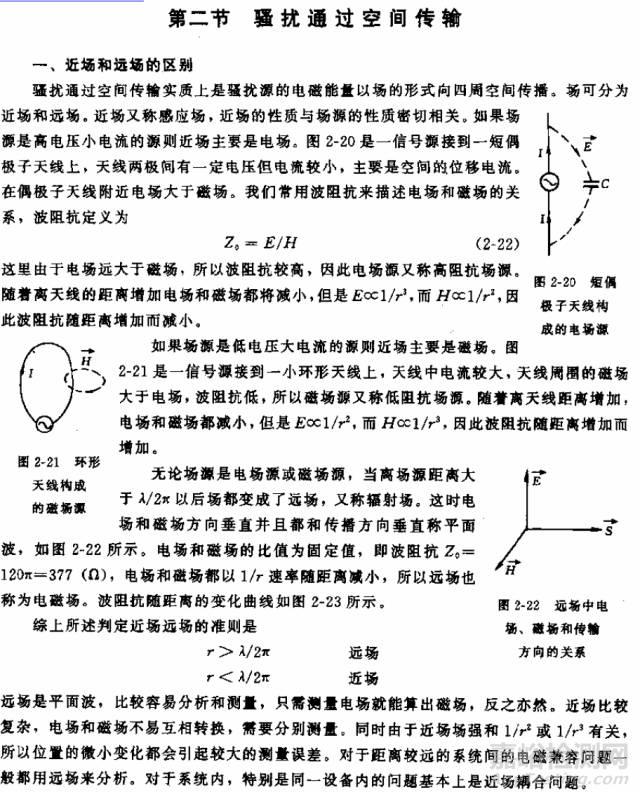 第二节 骚扰通过空间传输
一、近场和远场的区别
骚扰通过空间传输实质上是骚扰源的电磁能量以场的形式向四周空间传播。场可分为
近场和远场。近场又称感应场，近场的性质与场源的性质密切相关。如果场
源是高电压小电流的源则近场主要是电场。图 2-20 是一信号源接到一短偶
极子天线上，天线两极间有一定电压但电流较小，主要是空间的位移电流。
在偶极子天线附近电场大于磁场。我们常用波阻抗来描述电场和磁场的关
系，波阻抗定义为
Z₀ = E/H (2-22)
这里由于电场远大于磁场，所以波阻抗较高，因此电场源又称高阻抗场源。
随着离天线的距离增加电场和磁场都将减小，但是 E∝1/r³，而 H∝1/r²，因
此波阻抗随距离增加而减小。
I
E
C
I
图 2-20 短偶
极子天线构
成的电场源
如果场源是低电压大电流的源则近场主要是磁场。图
2-21 是一信号源接到一小环形天线上，天线中电流较大，天线周围的磁场
大于电场，波阻抗低，所以磁场源又称低阻抗场源。随着离天线距离增加，
电场和磁场都减小，但是 E∝1/r²，而 H∝1/r³，因此波阻抗随距离增加而
增加。
H
I
图 2-21 环形
天线构成
的磁场源
无论场源是电场源或磁场源，当离场源距离大
于 λ/2π 以后场都变成了远场，又称辐射场。这时电
场和磁场方向垂直并且都和传播方向垂直称平面
波，如图 2-22 所示。电场和磁场的比值为固定值，即波阻抗 Z₀=
120π=377 (Ω)，电场和磁场都以 1/r 速率随距离减小，所以远场也
称为电磁场。波阻抗随距离的变化曲线如图 2-23 所示。
E
S
H
图 2-22 远场中电
场、磁场和传输
方向的关系
综上所述判定近场远场的准则是
r > λ/2π 远场
r < λ/2π 近场
远场是平面波，比较容易分析和测量，只需测量电场就能算出磁场，反之亦然。近场比较
复杂，电场和磁场不易互相转换，需要分别测量。同时由于近场场强和 1/r² 或 1/r³ 有关，
所以位置的微小变化都会引起较大的测量误差。对于距离较远的系统间的电磁兼容问题一
般都用远场来分析。对于系统内，特别是同一设备内的问题基本上是近场耦合问题。
嘉峪检测网